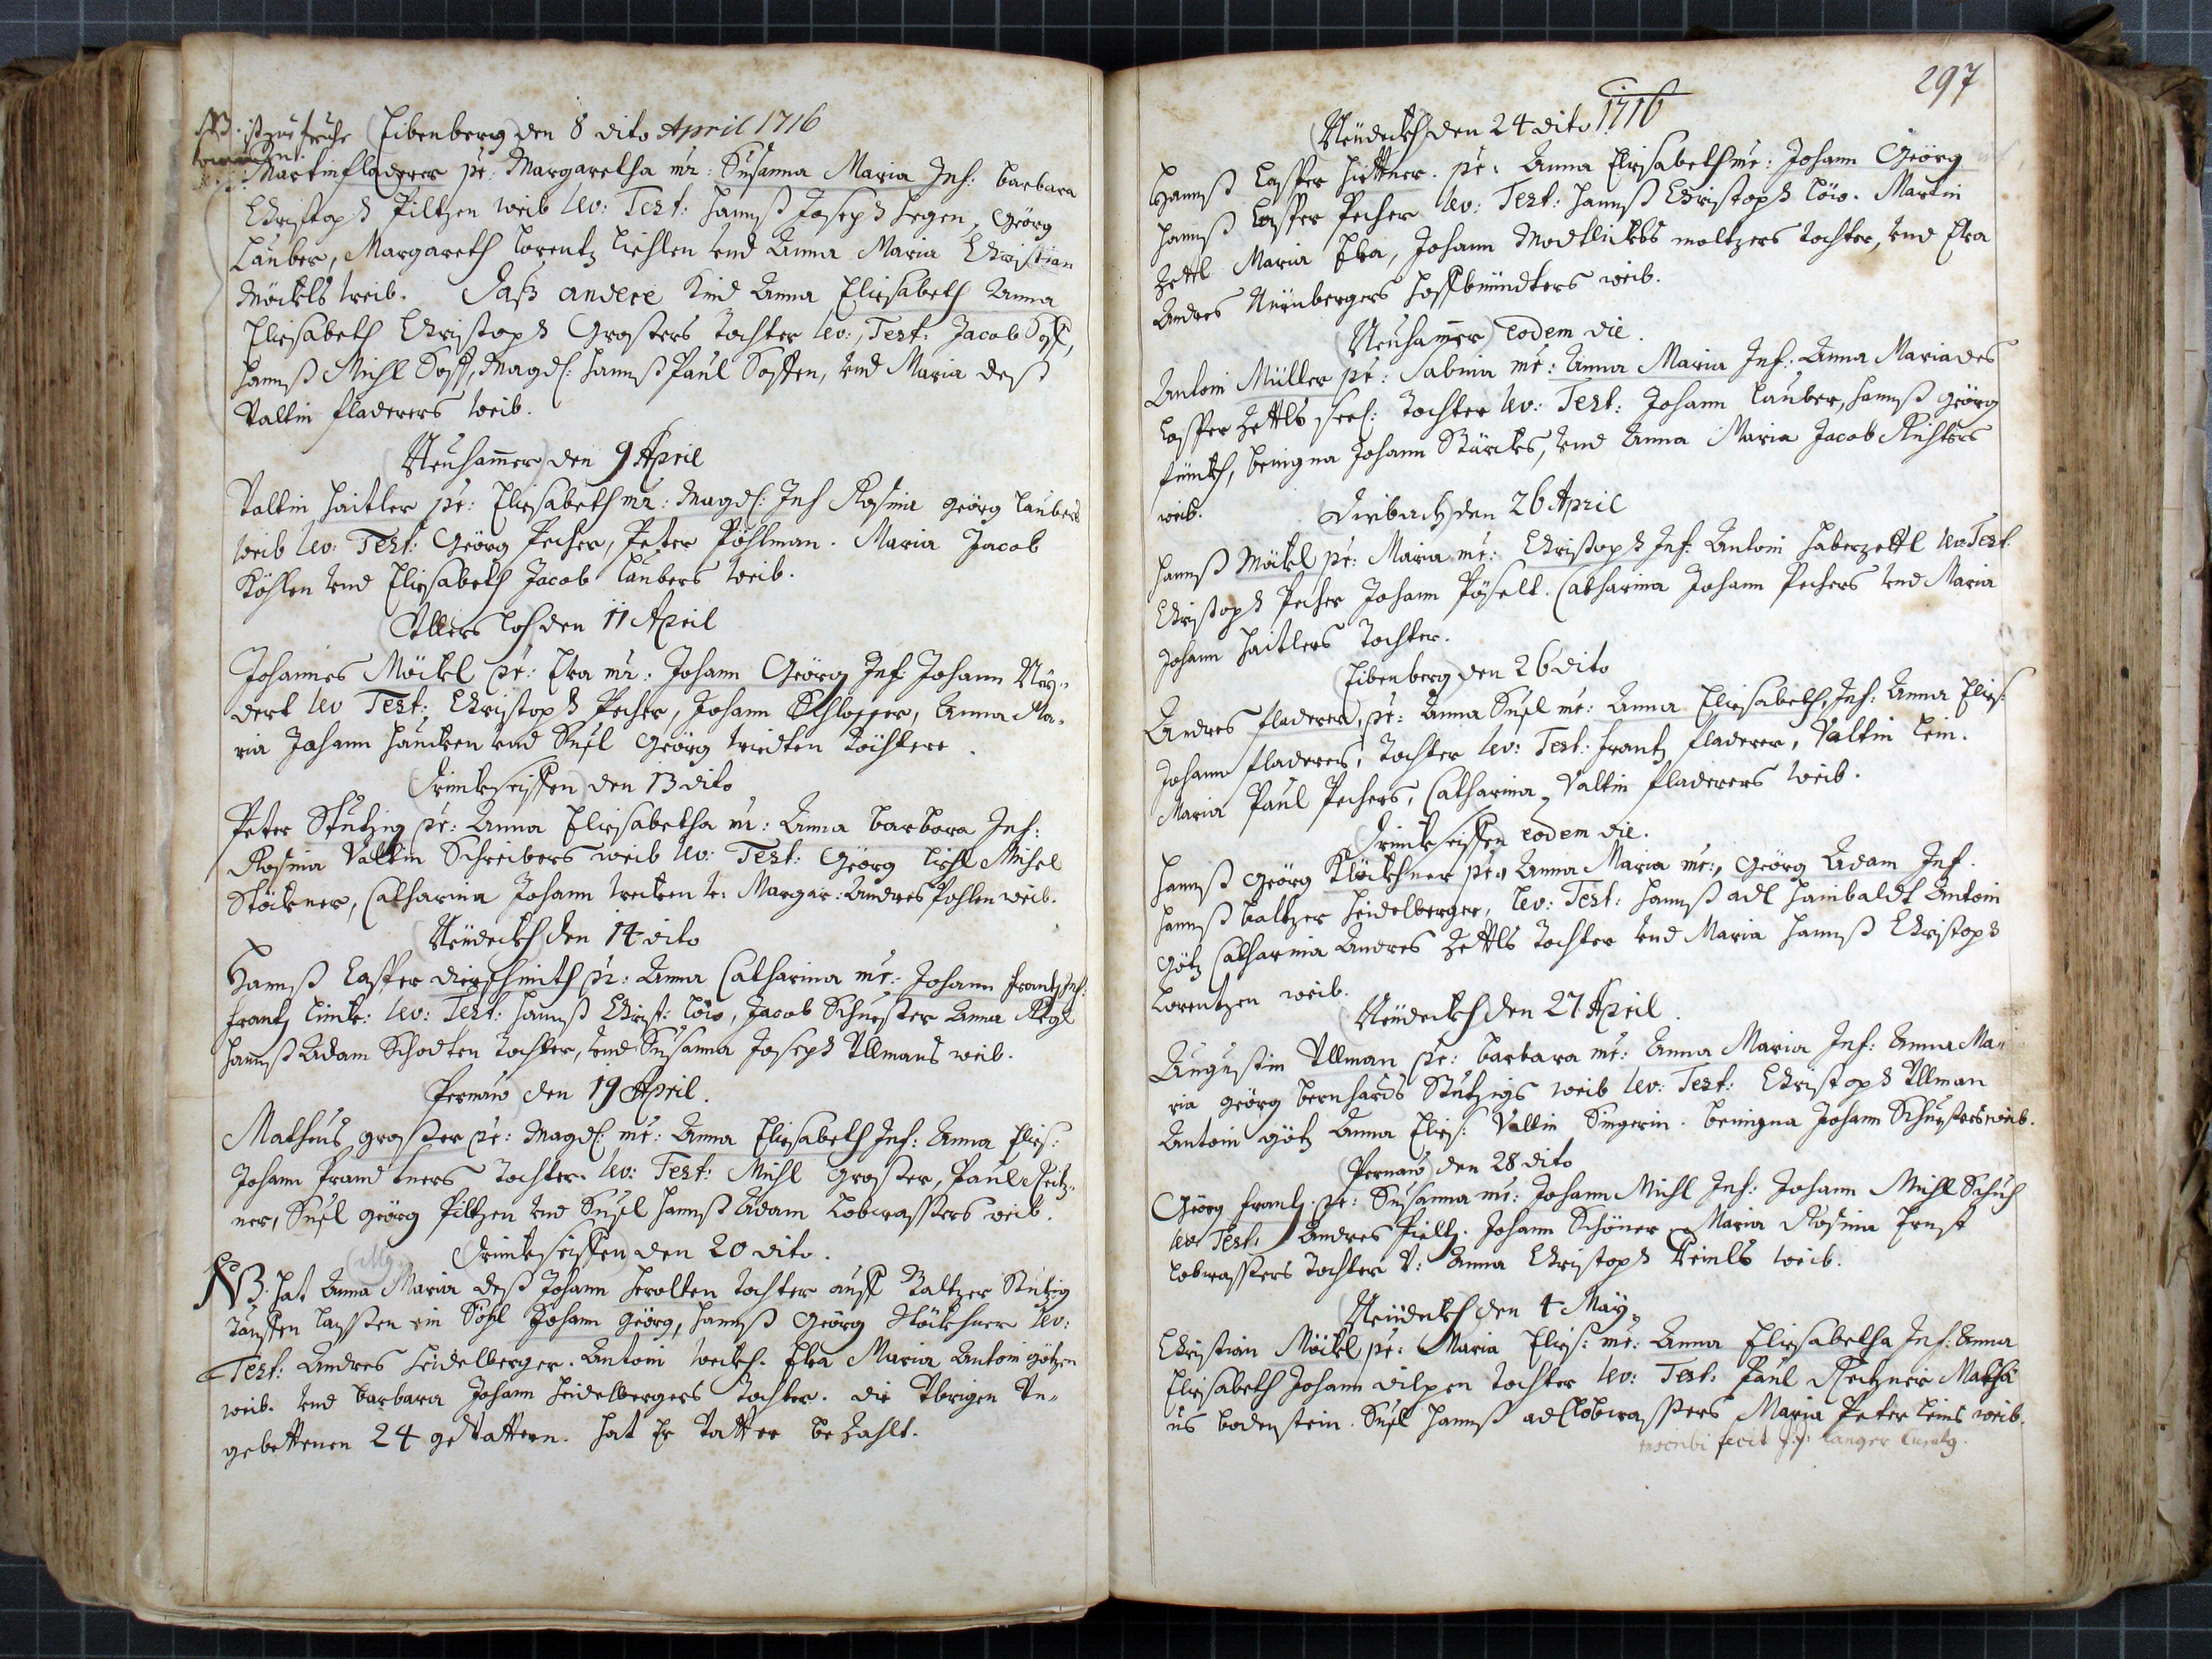 Eibenberg den 8 dito April 1716
Martin fladerer pr: Margaretha mr: Susanna Maria Inf: barbara
Christoph Piltzen weib lev: Test: Hannß Joseph Hegen, Georg
Lauber, Margareth Lorentz Liehlen vnd Anna Maria Christian
Möckls weib. Daß andere Kind Anna Elisabeth Anna
Elisabeth Christoph Grosers tochter lev: Test: Jacob
Hannß Michl, Magdl: Hannß Paul, vnd Maria deß
Valtin fladerers weib.
Neuhammer den 9 April
Valtin Haitler pr: Elisabeth mr: Magdl: Inf Rosina georg Laubers
weib lev: Test: Georg Pecher, Peter Pöhlman. Maria Jacob
Köhlen vnd Elisabeth Jacob Laubers weib.
den 11 April
Johannes Möckl pr: Eva mr: Johann Georg Inf: Johann Ney=
dert lev Test: Christoph Pecher, Johann Schlosser, Anna Ma=
ria Johann Hancken vnd Susl Georg Töchtere.
Trinkseiffen den 13 dito
Peter Stutzig pr: Anna Elisabetha m: Anna barbara Inf:
Rosina Valtin Schreibers weib lev: Test: Georg Liehl Michel
Stöckner, Catharina Johann v: Margar: Andres Pohlen weib.
Neudeckh den 14 dito
Hannß Casper dierschmidt pr: Anna Catharina mr: Johann frantz Inf:
frantz Linck: lev: Test: Hannß Christ: Löw, Jacob Schuster Anna Regl
Hannß Adam tochter, vnd Susanna Joseph Ullmans weib.
Pernau den 19 April.
Matheus groser pr: Magdl: mr: Anna Elisabeth Inf: Anna Elis:
Johann tochter lev: Test: Michl groser, Paul Reitz=
ner, Susl georg Piltzen vnd Susl Hannß Adam Lobwassers weib.
Trinkseiffen den 20 dito.
NB. Hat Anna Maria deß Johann Herolten tochter auff Baltzer Stutzig
tauffen lassen ein Söhl Johann Georg, Hannß Georg Klöckhner lev:
Test: Andres Heidelberger. Antoni. Eva Maria Antoni götzen
weib. vnd barbara Johann Heidelbergers tochter. die Vbrigen Vn=
gebettenen 24 gevattern. hat Er Vatter bezahlt.
297
1716
Neudeckh den 24 dito
Hannß Casper Hüttner. pr: Anna Elisabeth mr: Johann Georg
Hannß Casper Pecher lev: Test: Hannß Christoph Löw. Martin
Zettl Maria Eva, Johann moltzers tochter, vnd Eva
Andres Nürnbergers weib.
Neuhammer eodem die.
Antoni Müller pr: Sabina mr: Anna Maria Inf: Anna Maria des
Casper Zettls seel: tochter lev: Test: Johann Lauber, Hannß georg
, benigna Johann Stärckes, vnd Anna Maria Jacob Richters
weib.
den 26 April
Hannß Möckl pr: Maria mr: Christoph Inf: Antoni Haberzettl lev: Test.
Christoph Pecher Johann Pöselt. Catharina Johann Pechers vnd Maria
Johann Haitlers tochter.
Eibenberg den 26 dito
Andres fladerer, pr: Anna Susl mr: Anna Elisabeth, Inf: Anna Elis:
Johann fladerers, tochter lev: Test: frantz fladerer, Valtin Lein.
Maria Paul Pechers, Catharina Valtin fladerers weib.
Trinkseiffen eodem die.
Hannß Georg Klöckhner pr: Anna Maria mr:, georg Adam Inf.
Hannß baltzer Heidelberger, lev: Test: Hannß adl Hainbaldt Antoni
götz Catharina Andres Zettls tochter vnd Maria Hannß Christoph
Lorentzen weib.
Neudeckh den 27 April.
Augustin Ullman pr: barbara mr: Anna Maria Inf: Anna Ma=
ria georg bernhards Stutzigs weib lev: Test: Christoph Ullman
Antoni götz Anna Elis: Valtin Singerin. benigna Johann Schusters weib.
Pernau den 28 dito
Georg frantz pr: Susanna mr: Johann Michl Inf: Johann Michl Schuh
lev Test: Andres Piltz. Johann Schöner Maria Rosina Ernst
lobwassers tochter v: Anna Christoph Heinls weib.
Neudeckh den 4 May
Christian Möckl pr: Maria Elis: mr: Anna Elisabetha Inf: Anna
Elisabeth Johann tochter lev: Test: Paul Reitzner Mathæ
us bodenstein. Susl Hannß adl lobwassers Maria Peter Leins weib.